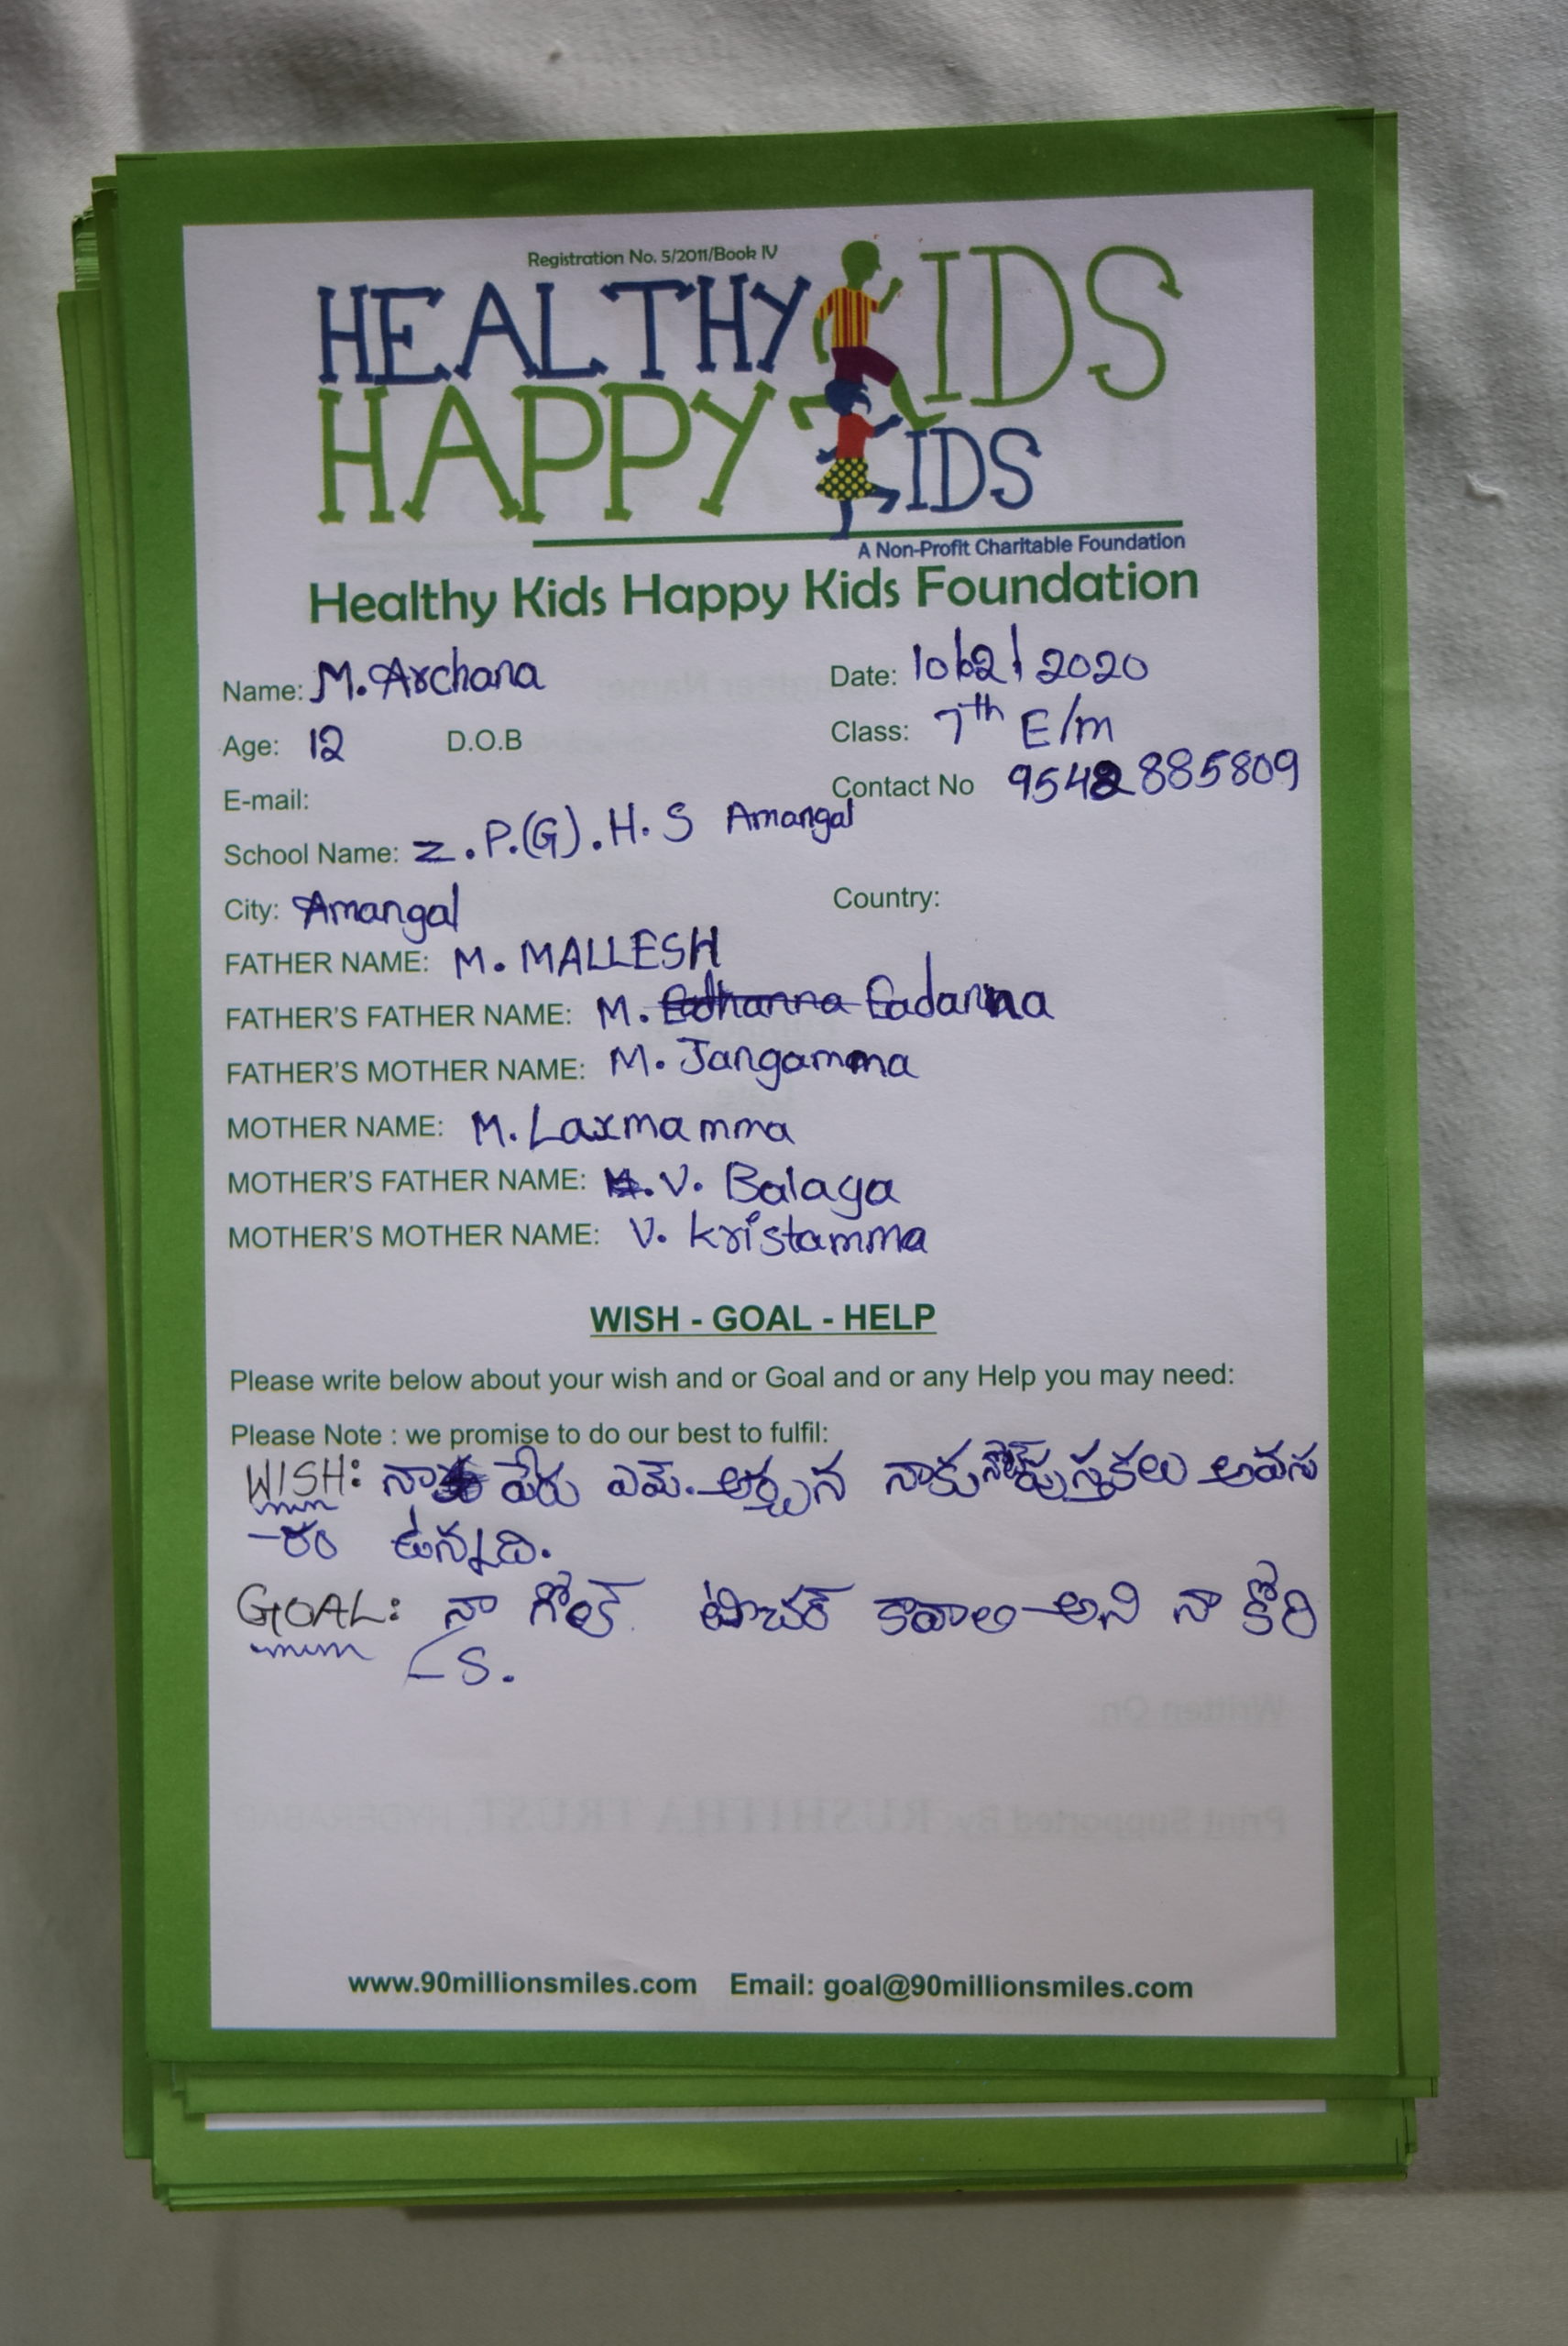 Registration No. 5/2011/Book IV
HEALTHY KIDS
HAPPY KIDS
A Non-Profit Charitable Foundation
Healthy Kids Happy Kids Foundation
Name: M. Archana Date: 10/02/2020
Age: 12 D.O.B Class: 7th E/m
E-mail: Contact No 9542885809
School Name: Z.P.(G).H.S Amangal
City: Amangal Country:
FATHER NAME: M. MALLESH
FATHER'S FATHER NAME: M. Eadanna
FATHER'S MOTHER NAME: M. Jangamma
MOTHER NAME: M. Laxmamma
MOTHER'S FATHER NAME: V. Balaya
MOTHER'S MOTHER NAME: V. kristamma
WISH - GOAL - HELP
Please write below about your wish and or Goal and or any Help you may need:
Please Note : we promise to do our best to fulfil:
WISH: నా పేరు ఎమ్. అర్చన నాకు నోట్ పుస్తకలు అవస
-రం ఉన్నది.
GOAL: నా గోల్ టీచర్ కావాలి అని నా కోరి
-క.
www.90millionsmiles.com Email: goal@90millionsmiles.com